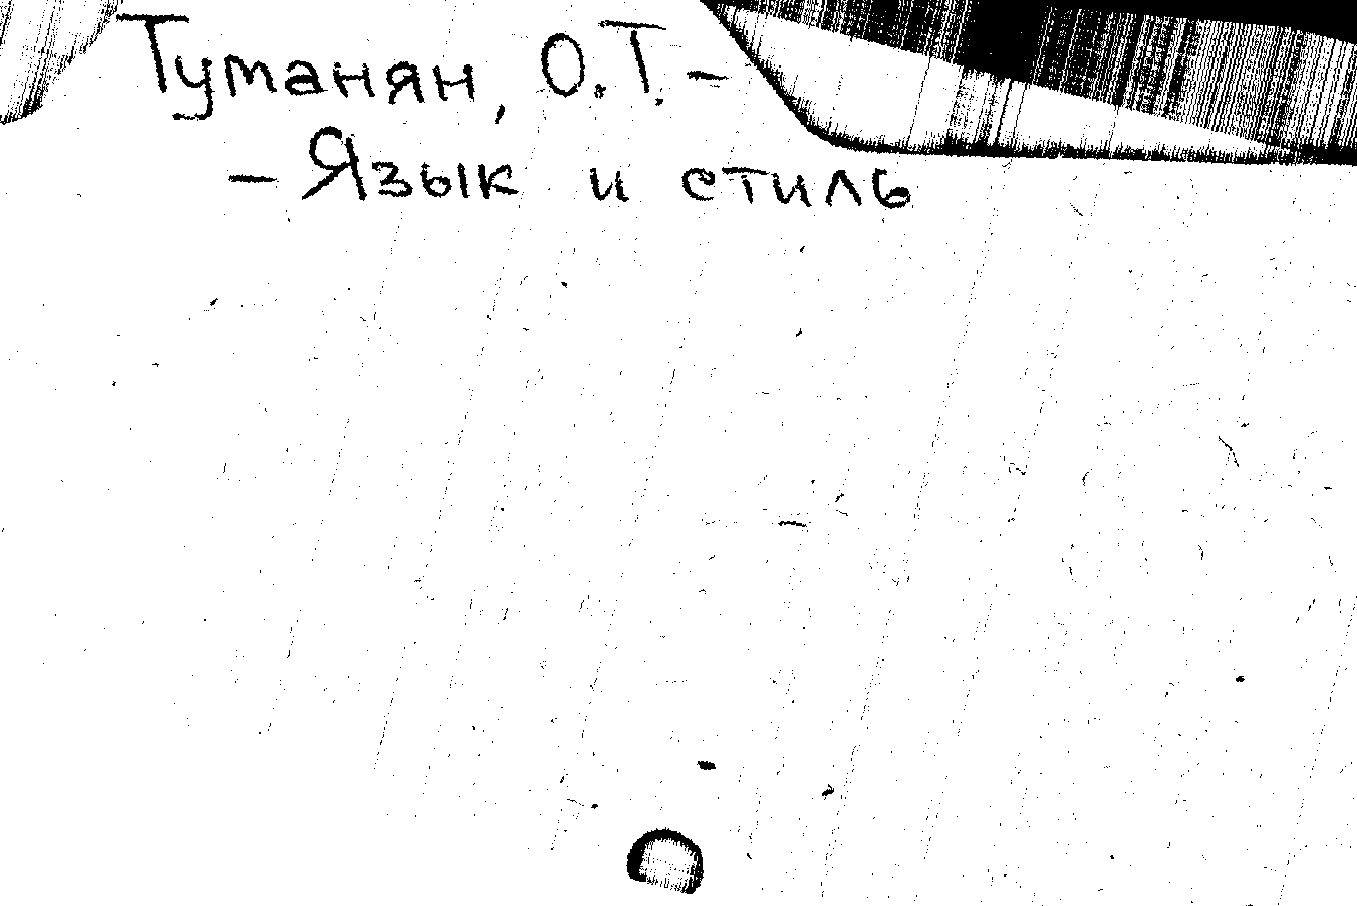 Туманян, О.Т. -
- Язык и стиль